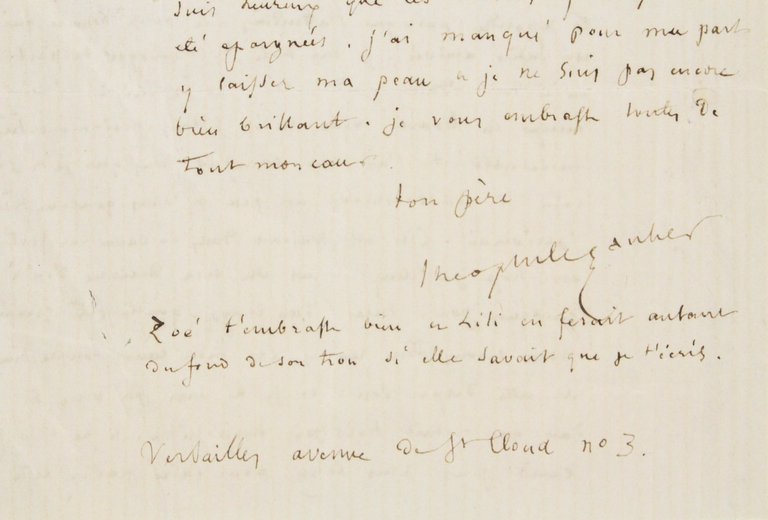 suis heureux que les
été epargnées. j'ai manqué pour ma part
y laisser ma peau et je ne suis pas encore
bien brillant. je vous embrasse toutes de
tout mon cœur.
ton père
Theophile Gautier
Zoé t'embrasse bien et Lili en ferait autant
du fond de son trou si elle savait que je t'écris.
Versailles avenue de St Cloud no 3.